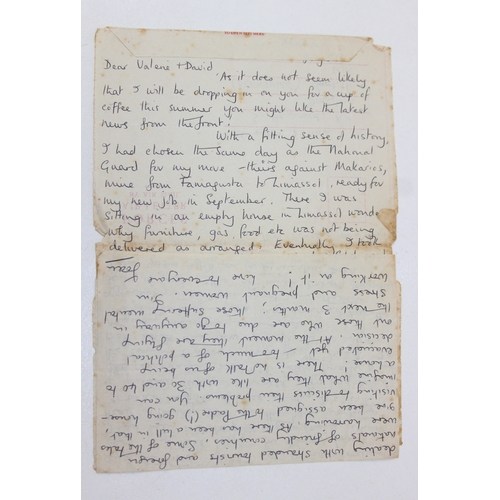 Dear Valerie + David
'As it does not seem likely
that I will be dropping in on you for a cup of
coffee this summer you might like the latest
news from the front.
With a fitting sense of history,
I had chosen the same day as the National
Guard for my move – theirs against Makarios,
mine from Famagusta to Limassol, ready for
my new job in September. There I was
sitting in an empty house in Limassol
why furniture, gas, food etc was not being
delivered as arranged. Eventually I took
dealing with stranded tourists and foreign
nationals of friendly countries. Some of the tales
were harrowing. As there has been a lull in that,
been assigned to the Padre (!) going house-
visiting to discuss their problems. You can
imagine what they are like with 30 and 40 to
a house! There is no talk of us being
evacuated yet – too much of a political
decision. At the moment they are flying
out those who are due to go anyway in
the next 3 months, those suffering mental
stress and pregnant women. I'm
working on it! Love to everyone
Jean